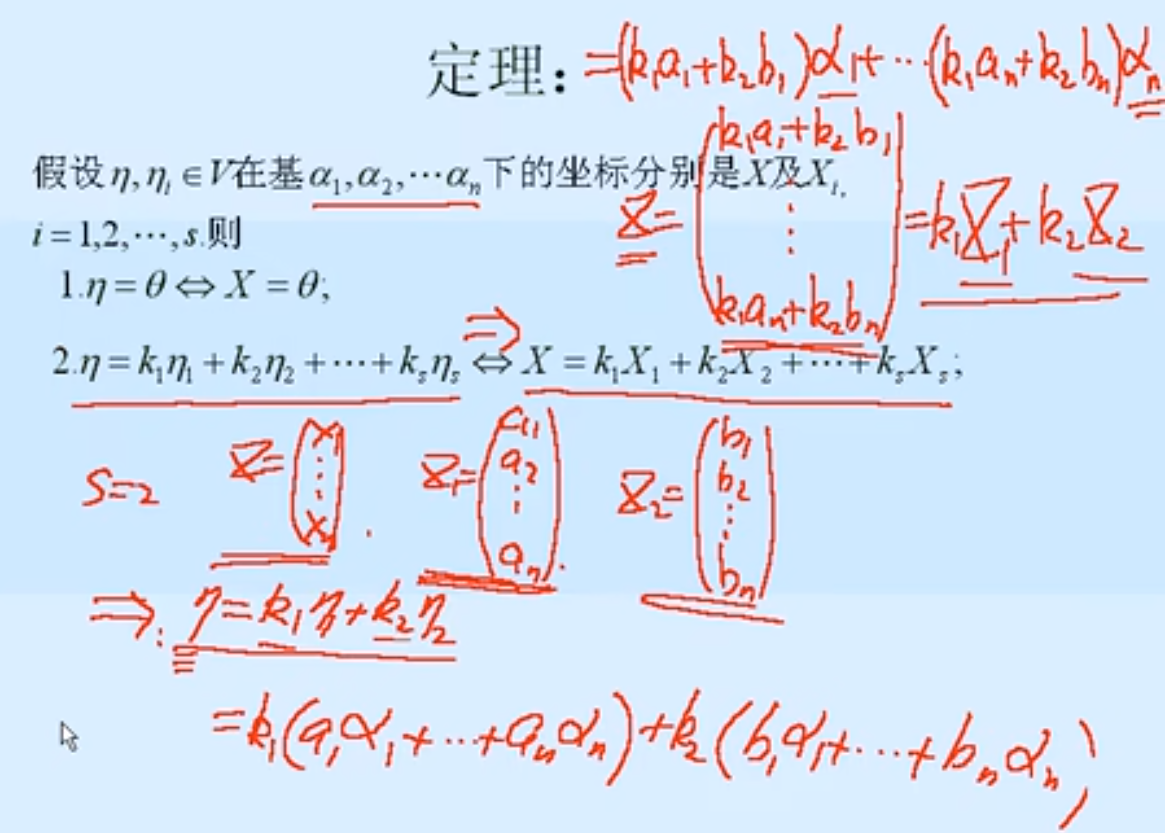 定理：=(k₁a₁+k₂b₁)α₁+⋯(k₁aₙ+k₂bₙ)αₙ
假设η,ηᵢ∈V在基α₁,α₂,⋯αₙ下的坐标分别是X及Xᵢ,
X=(k₁a₁+k₂b₁ ⋮ k₁aₙ+k₂bₙ)=k₁X₁+k₂X₂
i=1,2,⋯,s.则
1.η=θ⇔X=θ;
⇒
2.η=k₁η₁+k₂η₂+⋯+kₛηₛ⇔X=k₁X₁+k₂X₂+⋯+kₛXₛ;
S=2 X=(x₁ ⋮ xₙ). X₁=(a₁ a₂ ⋮ aₙ). X₂=(b₁ b₂ ⋮ bₙ)
⇒: η=k₁η₁+k₂η₂
=k₁(a₁α₁+⋯+aₙαₙ)+k₂(b₁α₁+⋯+bₙαₙ)